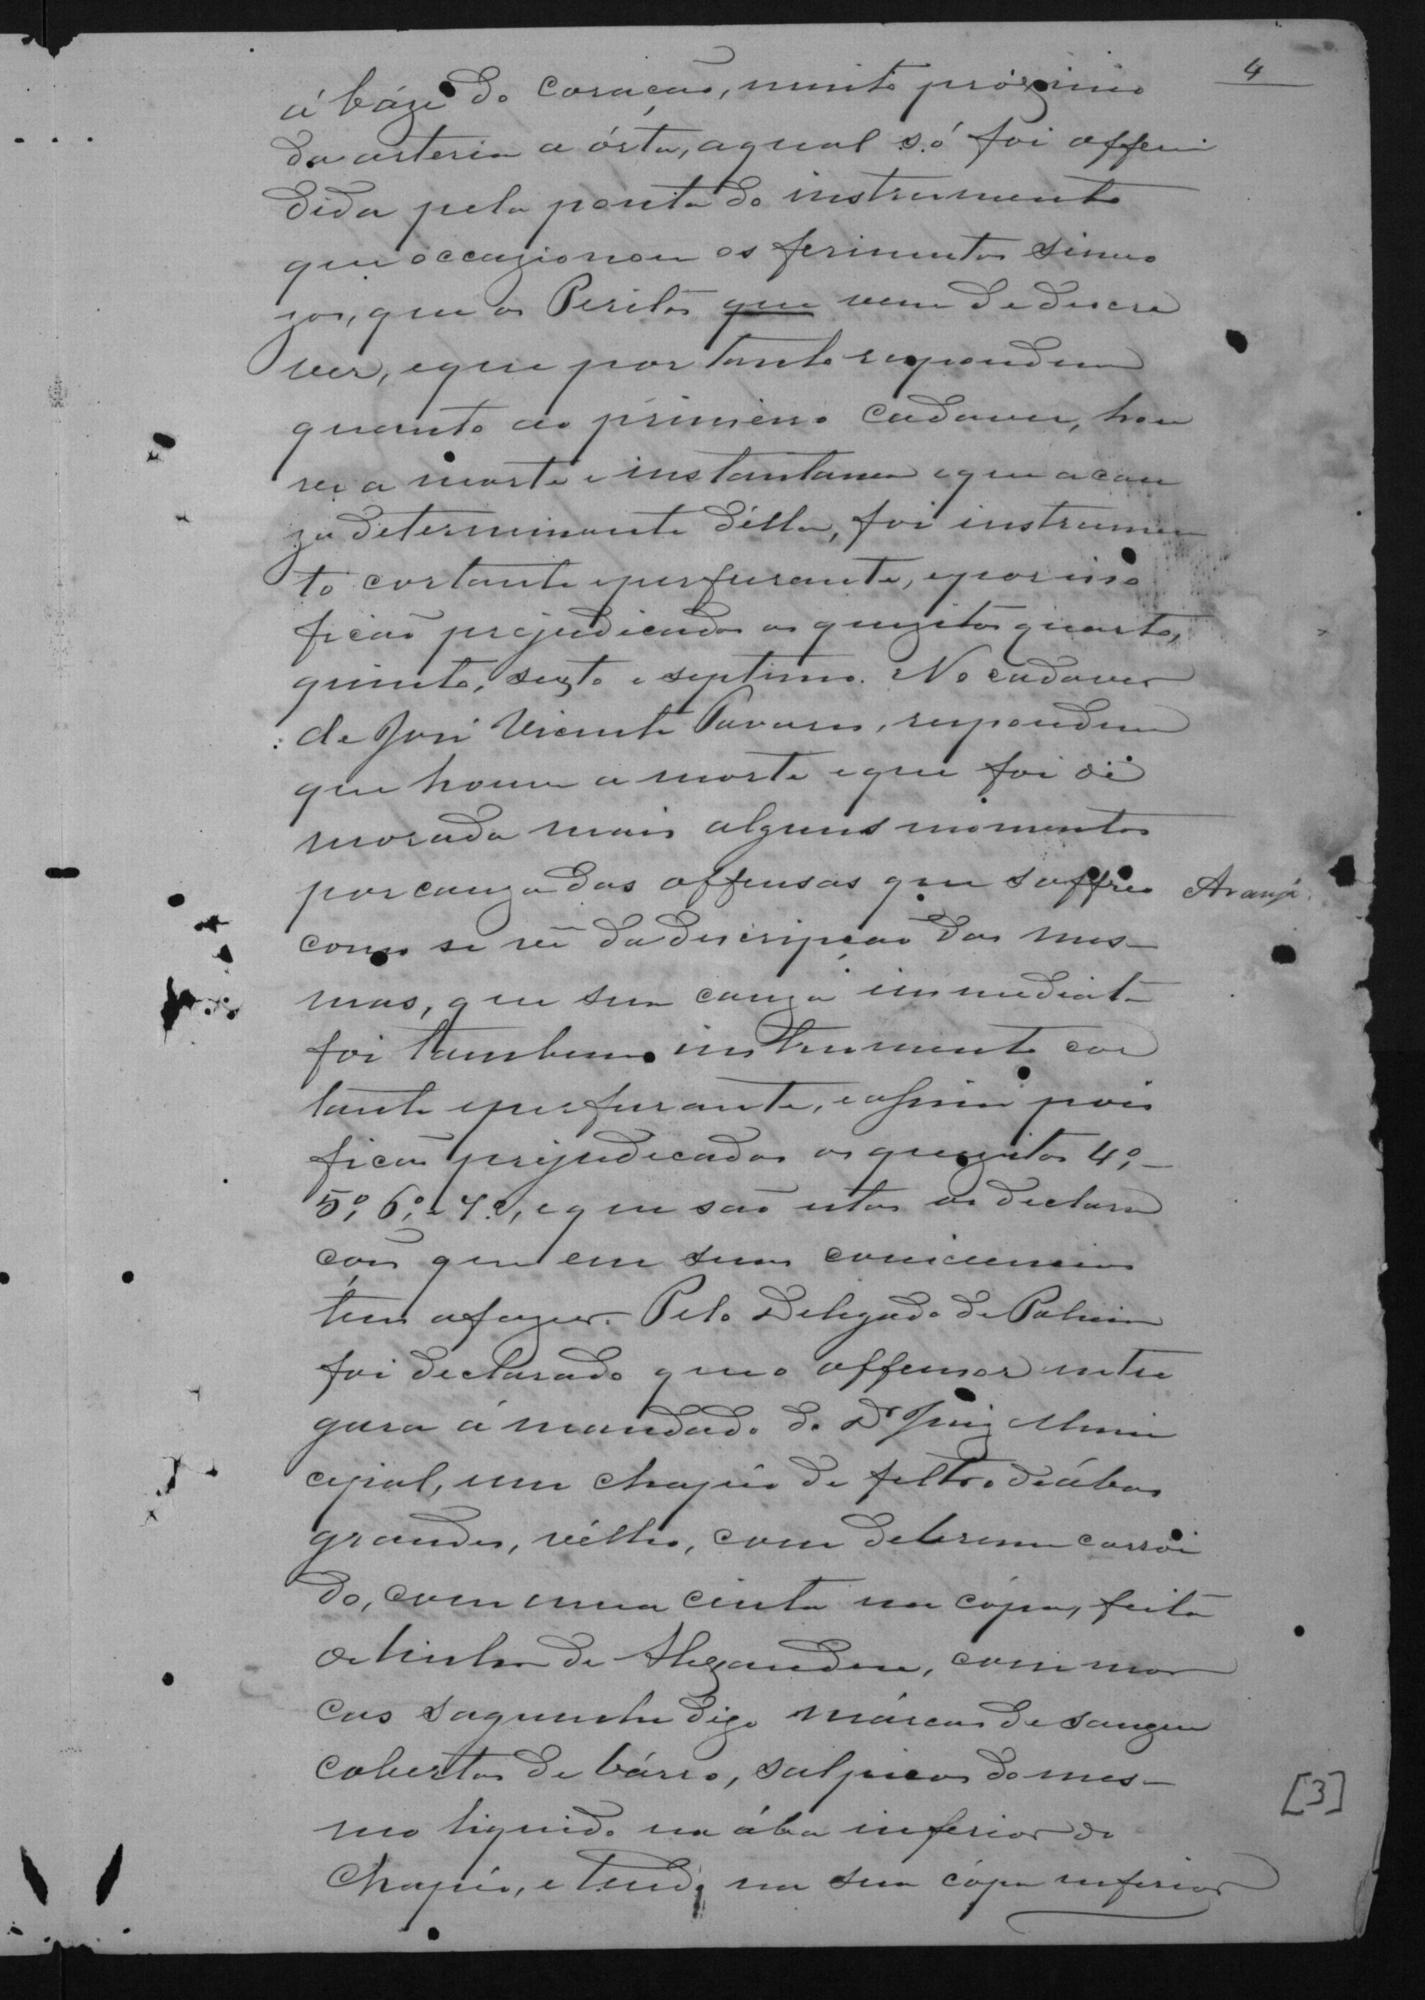 4
á báze do coração, muito próximo
da arteria a órta, a qual só foi offen
dida pela ponta do instrumento
que occazionou os ferimentos sinuo
zos, que os Peritos que vem de descre
ver, e que por tanto respondem
quanto ao primeiro cadaver, hou
ve a morte e instantanea e que a cau
za determinante délla, foi instrumen
to cortante e perfurante, e por isso
ficaõ prejudicados os quezitos quarto,
quinto, sexto e septimo. No cadaver
de José Vicente Tavares, respondem
que houve a morte e que foi de
morada mais alguns momentos
por cauza das offensas que soffreo
Araujo
como se vê da descripção das mes-
mas, que sua cauza immediata
foi tambem instrumento cor
tante e perfurante, e assim pois
ficaõ prejudicados os quezitos 4º,
5º, 6º, e 7º, e que saõ estas as declara
çoẽs que em suas consciencias
tem a fazer. Pelo Delegado de Policia
foi declarado que o offensor entre
gara á mandado do Dr Juiz Muni
cipal, um chapéo de feltro de ábas
grandes, vélho, com debrum corroi
do, com uma cinta na cópa, feita
de linha de Alexandre, com mar
cas saguenta digo márcas de sangue
cobertas de bárro, salpicos do mes-
mo liquido na ába inferior do
Chapéo, e tendo na sua cópa inferior
[3]